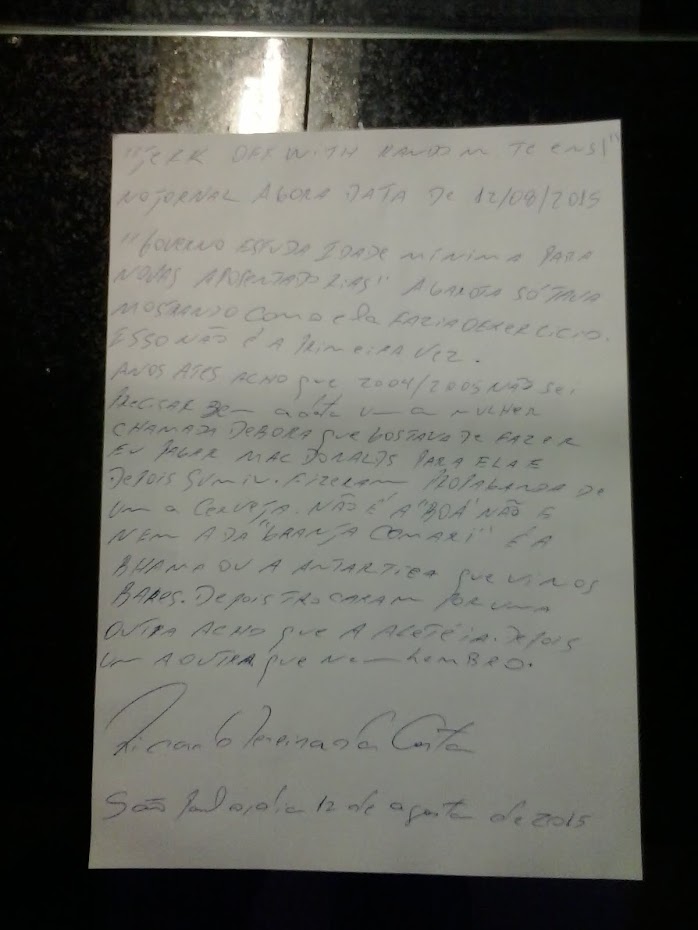 "JERK OFF WITH RANDOM TEENS!"
NO JORNAL AGORA DATA DE 12/08/2015
"GOVERNO ESTUDA IDADE MÍNIMA PARA
NOVAS APOSENTADORIAS" A GAROTA SÓ TAVA
MOSTRANDO COMO ELA FAZIA O EXERCICIO.
ESSO NÃO É A PRIMEIRA VEZ.
ANOS ATES ACHO que 2004/2005 NÃO sei
PRECISAR BEM a data UMA MULHER
CHAMADA DEBORA que GOSTAVA DE FAZER
EU PAGAR MAC DONALDS PARA ELA E
DEPOIS SUMIU. FIZERAM PROPAGANDA DE
UMA CERVEJA. NÃO É A "BOA" NÃO E
NEM A DA "GRANJA COMARI" É A
BHAMA OU A ANTARTICA que VI NOS
BARES. DEPOIS TROCARAM POR UMA
OUTRA ACHO que A DEPOIS
UMA OUTRA que NEM LEMBRO.
Ricardo Pereira da Costa
São Paulo, dia 12 de agosto de 2015